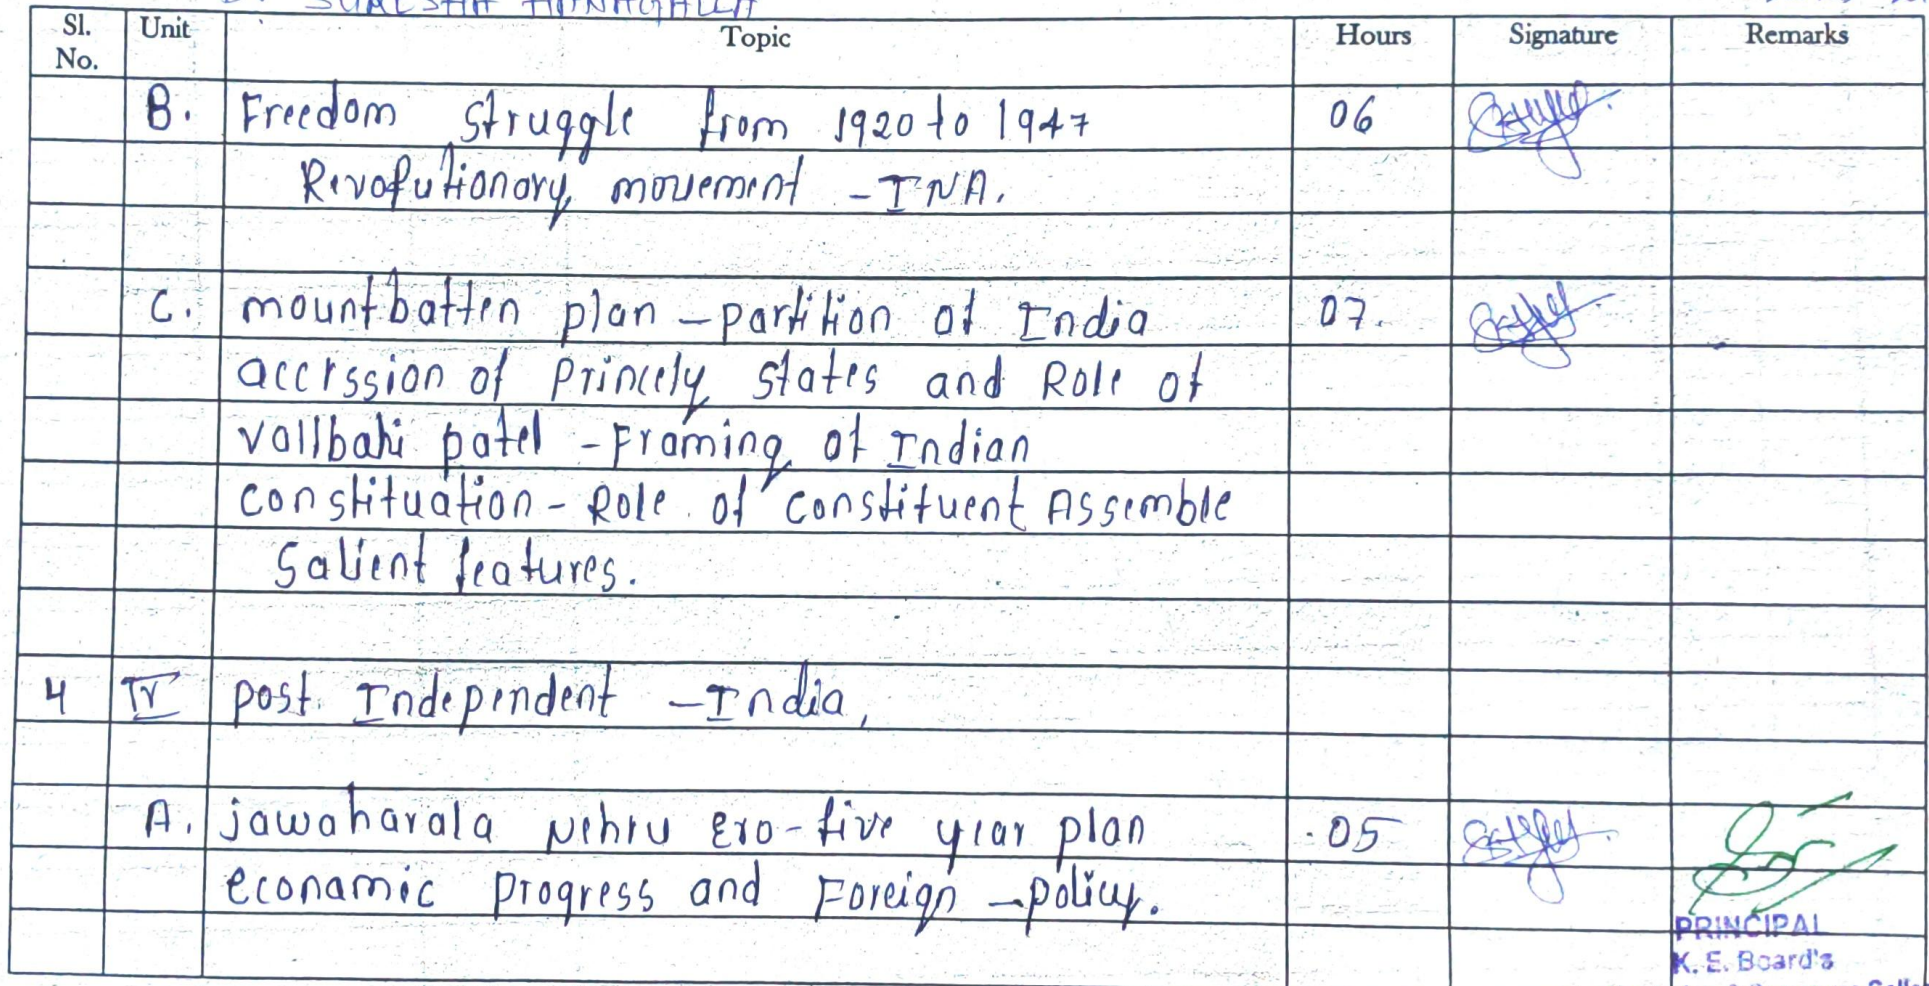 Sl. No. Unit Topic Hours Signature Remarks
B. Freedom struggle from 1920 to 1947 06
Revolutionary movement - INA.
C. mountbatten plan - partition of India 07.
accession of Princely states and Role of
vallbahi patel - Framing of Indian
constituation - Role of constituent Assemble
Salient features.
4 IV post. Independent - India,
A. jawaharala Nehru Era - five year plan 05
economic progress and Foreign - policy.
PRINCIPAL
K. E. Board's